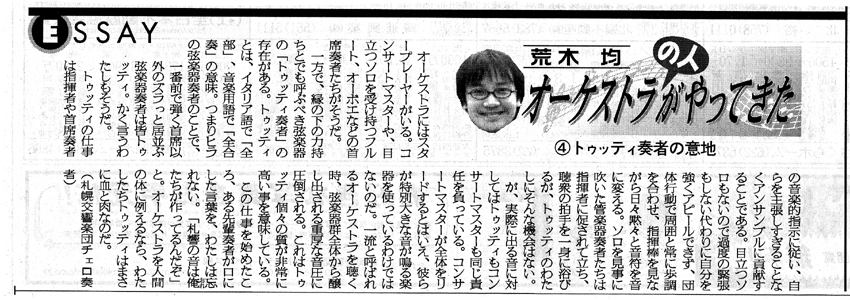 ESSAY
荒木 均の人
オーケストラがやってきた
④トゥッティ奏者の意地
オーケストラにはスタ
ープレーヤーがいる。コ
ンサートマスターや、目
立つソロを受け持つフル
ート、オーボエなどの首
席奏者たちがそうだ。
一方で、縁の下の力持
ちとでも呼ぶべき弦楽器
の「トゥッティ奏者」の
存在がある。トゥッティ
とは、イタリア語で「全
部」、音楽用語で「全合
奏」の意味。つまりヒラ
の弦楽器奏者のことで、
一番前で弾く首席以
外のズラっと居並ぶ
弦楽器奏者は皆トゥ
ッティ。かく言うわ
たしもそうだ。
トゥッティの仕事
は指揮者や首席奏者
の音楽的指示に従い、自
らを主張しすぎることな
くアンサンブルに貢献す
ることである。目立つソ
ロもないので過度の緊張
もしない代わりに自分を
強くアピールできず、団
体行動で周囲と常に歩調
を合わせ、指揮棒を見な
がら日々黙々と音符を音
に変える。ソロを見事に
吹いた管楽器奏者たちは
指揮者に促されて立ち、
聴衆の拍手を一身に浴び
るが、トゥッティのわた
しにそんな機会はない。
が、実際に出る音に対
してはトゥッティもコン
サートマスターも同じ責
任を負っている。コンサ
ートマスターが全体をリ
ードするとはいえ、彼ら
が特別大きな音が鳴る楽
器を使っているわけでは
ないのだ。一流と呼ばれ
るオーケストラを聴く
時、弦楽器群全体から醸
し出される重厚な音圧に
圧倒される。これはトゥ
ッティ個々の質が非常に
高い事を意味している。
この仕事を始めたこ
ろ、ある先輩奏者が口に
した言葉を、わたしは忘
れない。「札響の音は俺
たちが作ってるんだぞ」
と。オーケストラを人間
の体に例えるなら、わた
したちトゥッティはまさ
に血と肉なのだ。
（札幌交響楽団チェロ奏
者）